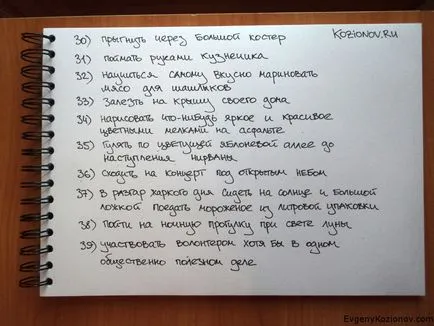 Kozionov.ru
30) прыгнуть через большой костер
31) поймать руками кузнечика
32) научиться самому вкусно мариновать
мясо для шашлыков
33) залезть на крышу своего дома
34) нарисовать что-нибудь яркое и красивое
цветными мелками на асфальте
35) гулять по цветущей яблоневой аллее до
наступления нирваны
36) сходить на концерт под открытым небом
37) в разгар жаркого дня сидеть на солнце и большой
ложкой поедать мороженое из литровой упаковки
38) пойти на ночную прогулку при свете луны
39) участвовать волонтером хотя бы в одном
общественно полезном деле
EvgenyKozionov.com